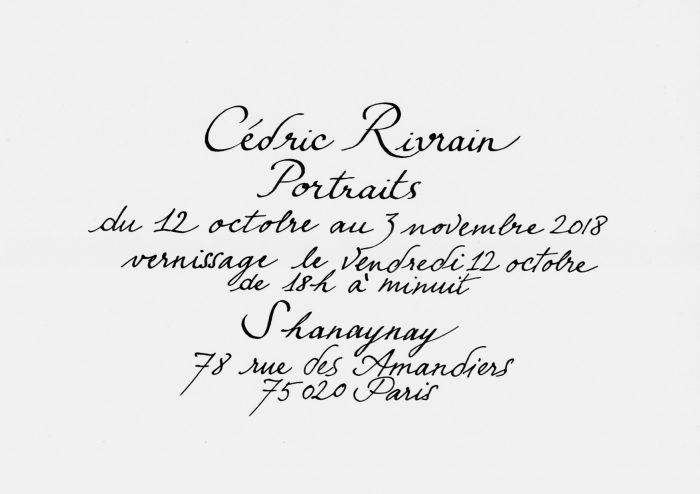 Cédric Rivrain
Portraits
du 12 octobre au 3 novembre 2018
vernissage le vendredi 12 octobre
de 18h à minuit
Shanaynay
78 rue des Amandiers
75020 Paris